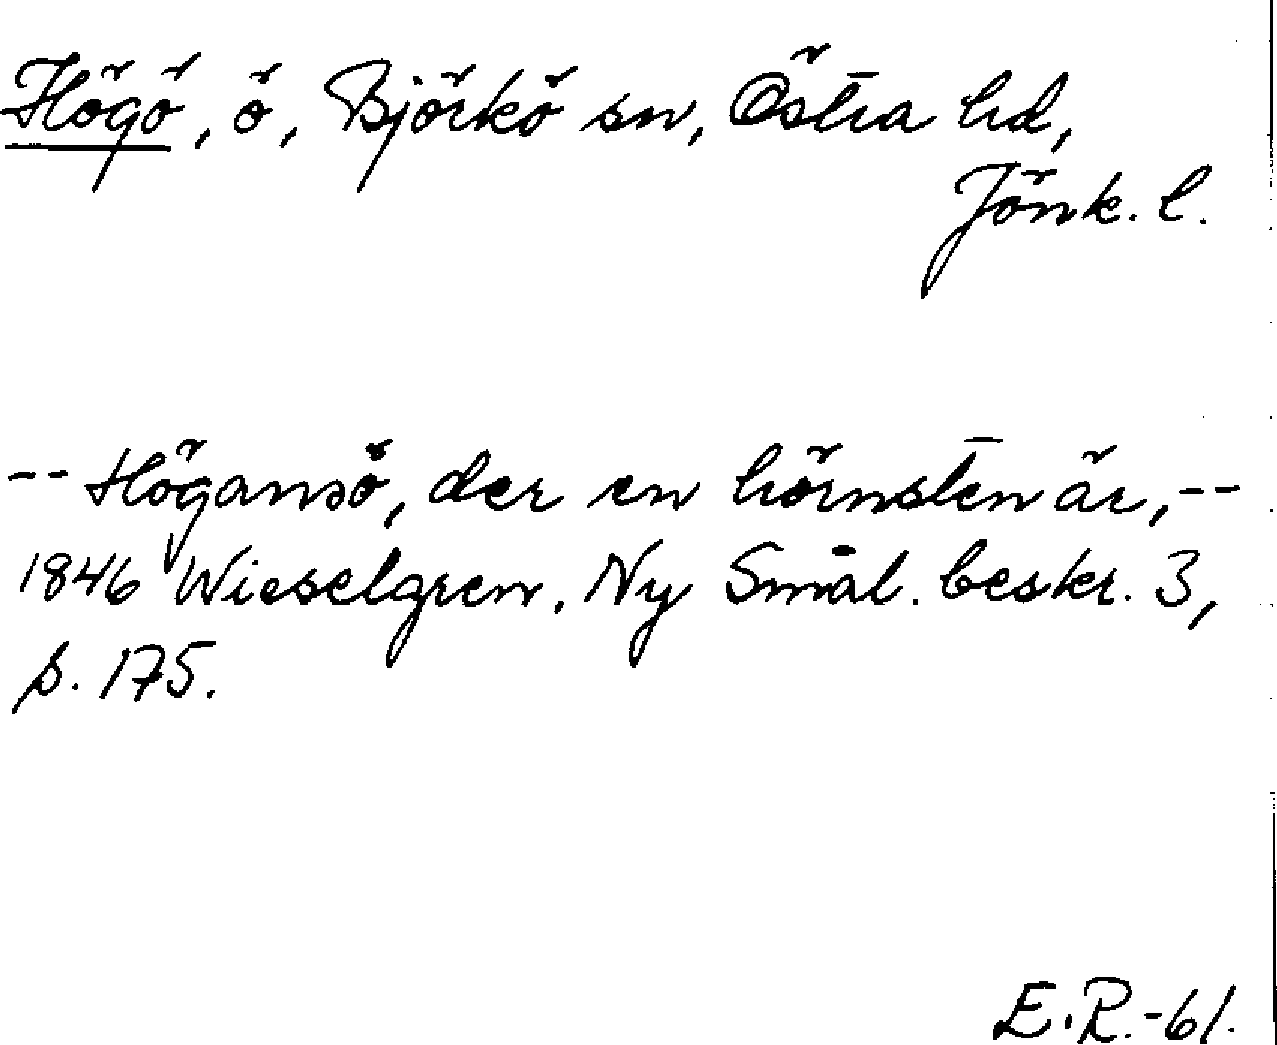 Högö, ö, Björkö sn, Östra hd,
Jönk. l.
-- Högansö, der en hörnsten är, --
1846 Wieselgren. Ny Smål. beskr. 3,
s. 175.
E.R.-61.